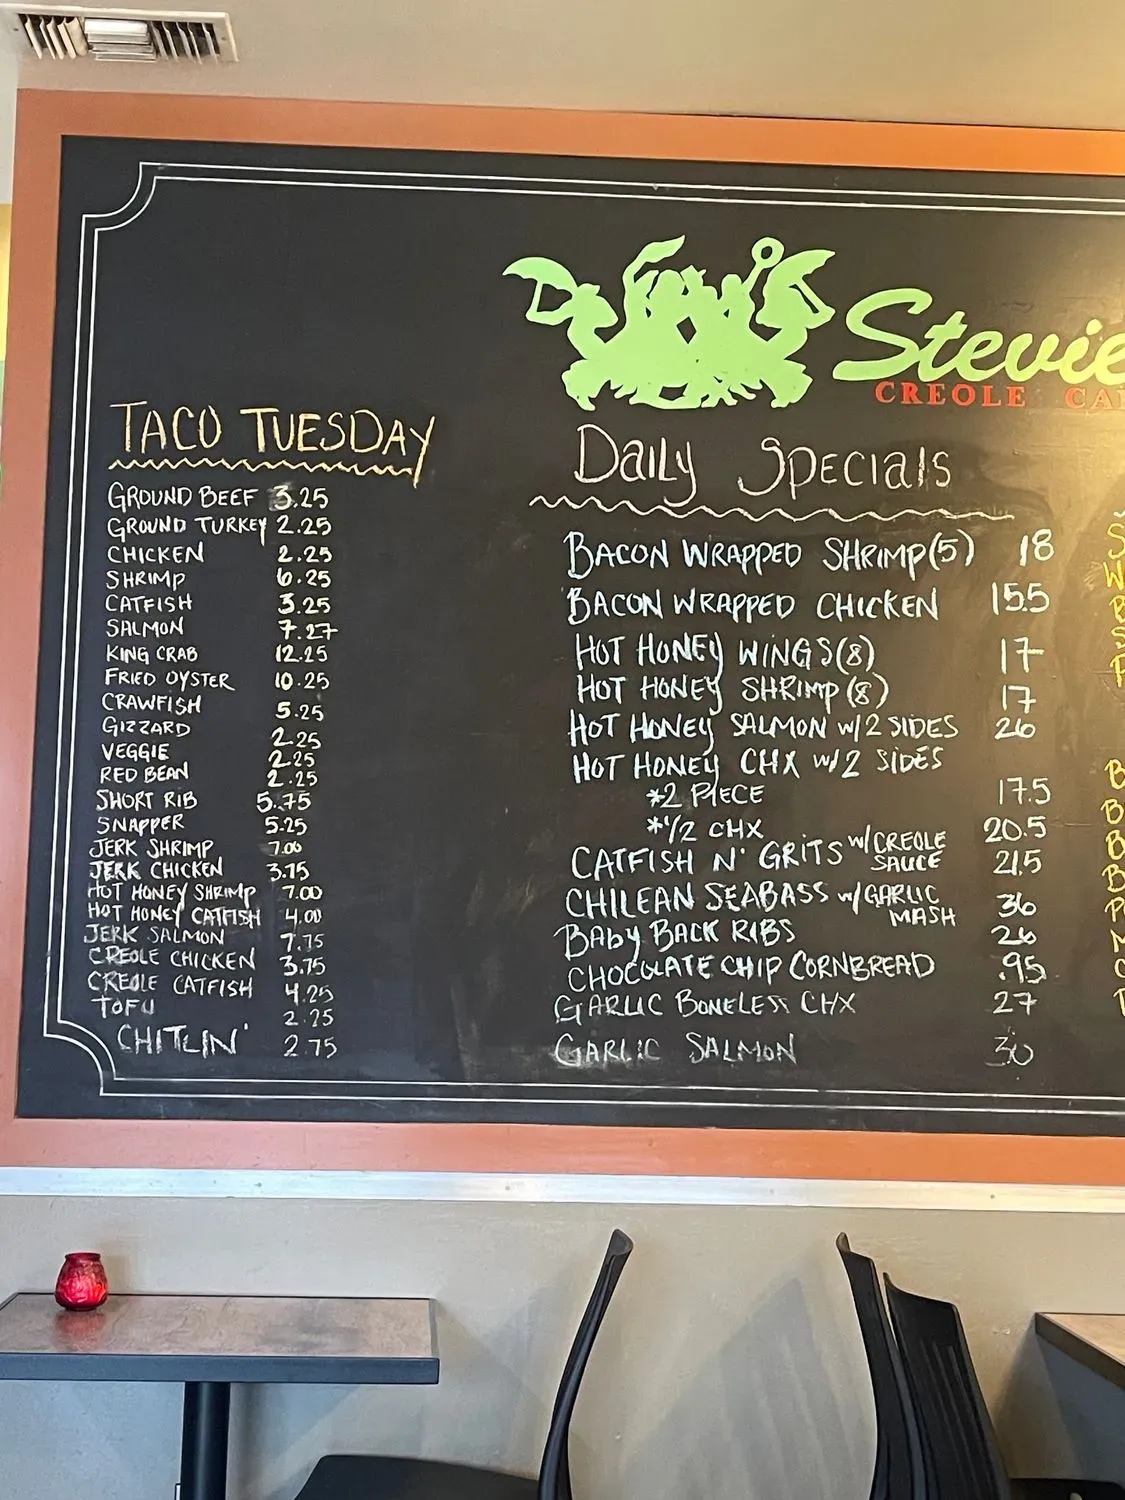 Stevie
CREOLE CA
TACO TUESDAY
GROUND BEEF 3.25
GROUND TURKEY 2.25
CHICKEN 2.25
SHRIMP 6.25
CATFISH 3.25
SALMON 7.27
KING CRAB 12.25
FRIED OYSTER 10.25
CRAWFISH 5.25
GIZZARD 2.25
VEGGIE 2.25
RED BEAN 2.25
SHORT RIB 5.75
SNAPPER 5.25
JERK SHRIMP 7.00
JERK CHICKEN 3.75
HOT HONEY SHRIMP 7.00
HOT HONEY CATFISH 4.00
JERK SALMON 7.75
CREOLE CHICKEN 3.75
CREOLE CATFISH 4.25
TOFU 2.25
CHITLIN' 2.75
Daily Specials
BACON WRAPPED SHRIMP (5) 18
BACON WRAPPED CHICKEN 15.5
HOT HONEY WINGS (8) 17
HOT HONEY SHRIMP (8) 17
HOT HONEY SALMON w/2 SIDES 26
HOT HONEY CHX w/2 SIDES
*2 PIECE 17.5
*1/2 CHX 20.5
CATFISH N' GRITS w/CREOLE SAUCE 21.5
CHILEAN SEABASS w/GARLIC MASH 36
BABY BACK RIBS 26
CHOCOLATE CHIP CORNBREAD .95
GARLIC BONELESS CHX 27
GARLIC SALMON 30